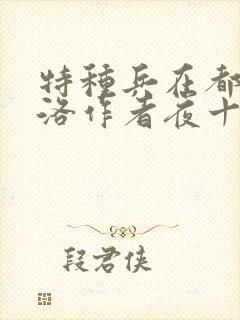 特種兵在都
洛作者夜十
段君俠